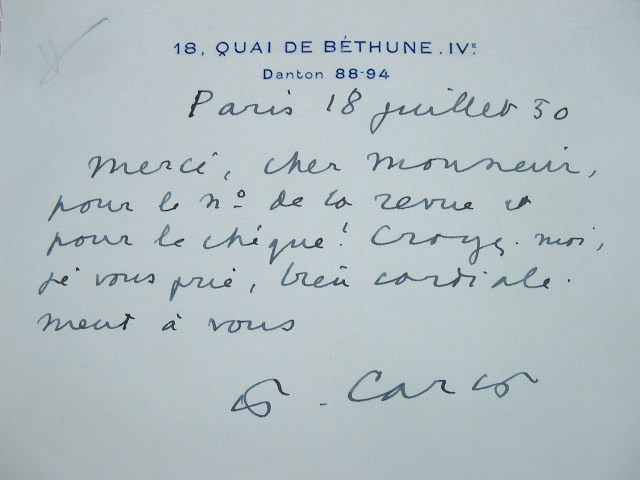 18, QUAI DE BÉTHUNE. IVᵉ
Danton 88-94
Paris 18 juillet 50
Merci, cher Monsieur,
pour le nº de la revue et
pour le chèque! Croyez-moi,
je vous prie, bien cordiale-
ment à vous
F. Carco